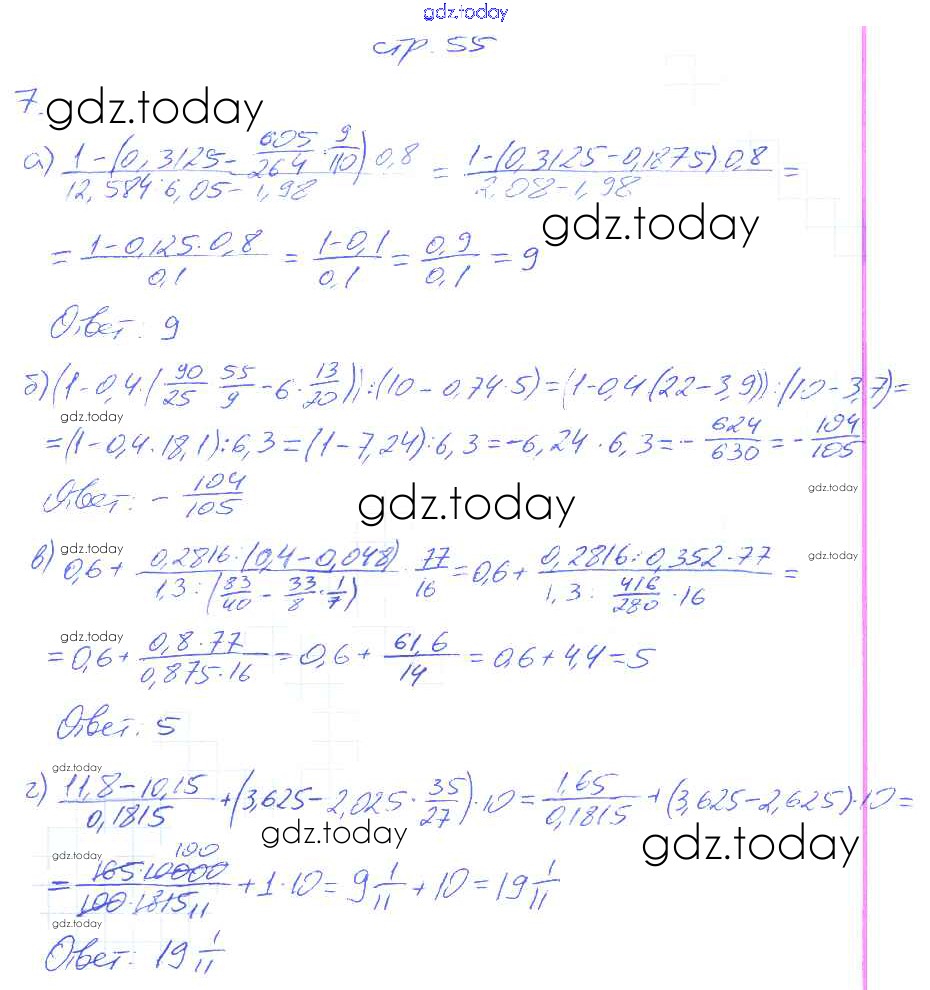 gdz.today
стр. 55
7. gdz.today
а) (1-(0,3125-605/264·9/10)·0,8)/(12,584:6,05-1,98) = (1-(0,3125-0,1875)·0,8)/(2,08-1,98) =
gdz.today
= (1-0,125·0,8)/0,1 = (1-0,1)/0,1 = 0,9/0,1 = 9
Ответ: 9
б) (1-0,4·(90/25·55/9-6·13/20)):(10-0,74·5)=(1-0,4(22-3,9)):(10-3,7)=
gdz.today
=(1-0,4·18,1):6,3=(1-7,24):6,3=-6,24·6,3=-624/630=-104/105
gdz.today
Ответ: -104/105
gdz.today
в) 0,6+(0,2816:(0,4-0,048))/(1,3:(83/40-33/8·1/7))·77/16=0,6+(0,2816:0,352·77)/(1,3:416/280·16)=
gdz.today gdz.today
gdz.today
=0,6+(0,8·77)/(0,875·16)=0,6+61,6/14=0,6+4,4=5
Ответ: 5
gdz.today
г) (11,8-10,15)/0,1815+(3,625-2,025·35/27)·10=1,65/0,1815+(3,625-2,625)·10=
gdz.today gdz.today
gdz.today 100
=(165·10000)/(100·1815 11)+1·10=9 1/11+10=19 1/11
gdz.today
Ответ: 19 1/11